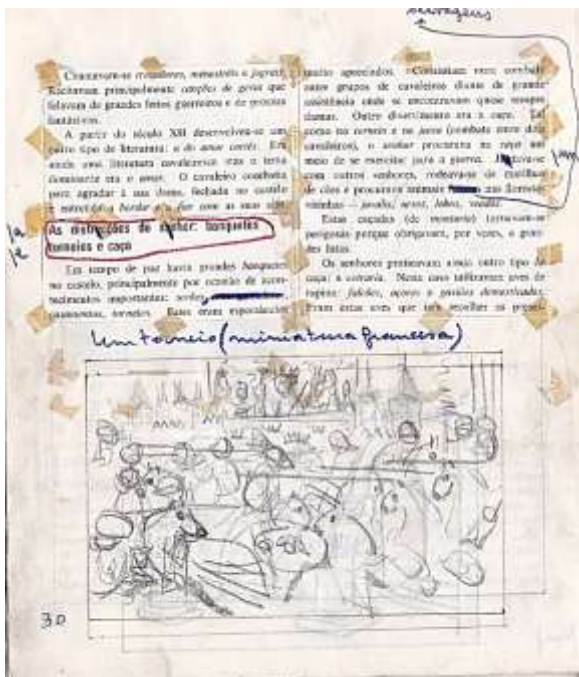 selvagens
Chamavam-se trovadores, menestréis e jograis.
Recitavam principalmente canções de gesta que
falavam de grandes feitos guerreiros e de proezas
fantásticas.
A partir do século XII desenvolveu-se um
outro tipo de literatura: a do amor cortês. Era
ainda uma literatura cavaleiresca mas o tema
dominante era o amor. O cavaleiro combatia
para agradar à sua dama, fechada no castelo
e entretida a bordar e a fiar com as suas
As distracções do senhor: banquetes
torneios e caça
Em tempo de paz havia grandes banquetes
no castelo, principalmente por ocasião de acon-
tecimentos importantes:
casamentos, torneios. Estes eram espectáculos
muito apreciados. Consistiam num combate
entre grupos de cavaleiros diante de grande
assistência onde se encontravam quase sempre
damas. Outro divertimento era a caça. Tal
como no torneio e na justa (combate entre dois
cavaleiros), o senhor procurava na caça um
meio de se exercitar para a guerra.
com outros senhores, rodeava-se de matilhas
de cães e procurava animais nas florestas
vizinhas — javalis, ursos, lobos, veados.
Estas caçadas (de montaria) tornavam-se
perigosas porque obrigavam, por vezes, a gran-
des lutas.
Os senhores praticavam ainda outro tipo de
caça: a cetraria. Neste caso utilizavam aves de
rapina: falcões, açores e gaviões domesticados.
Eram estas aves que iam recolher as presas.
Um torneio (miniatura francesa)
30